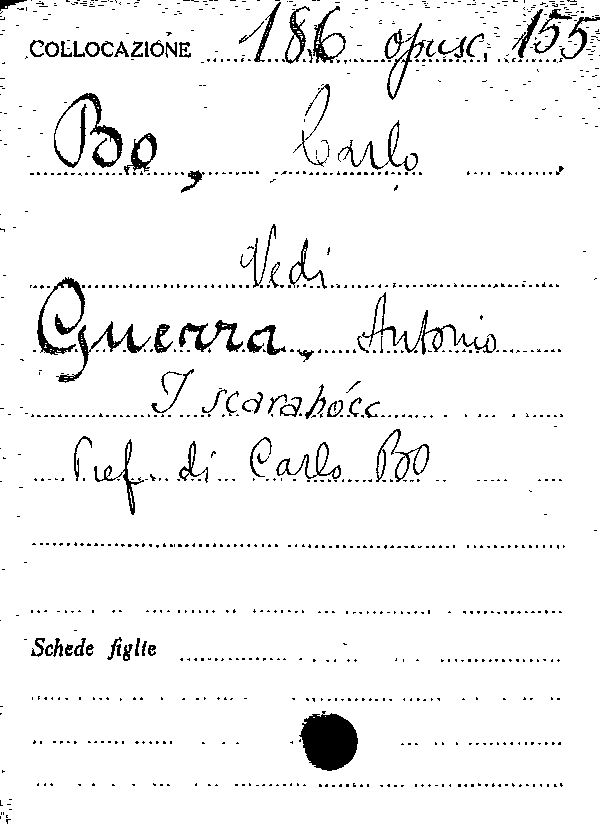 COLLOCAZIONE 186 opusc. 155
Bo, Carlo
Vedi
Guerra, Antonio
I scarabócc
Pref. di Carlo BO
Schede figlie